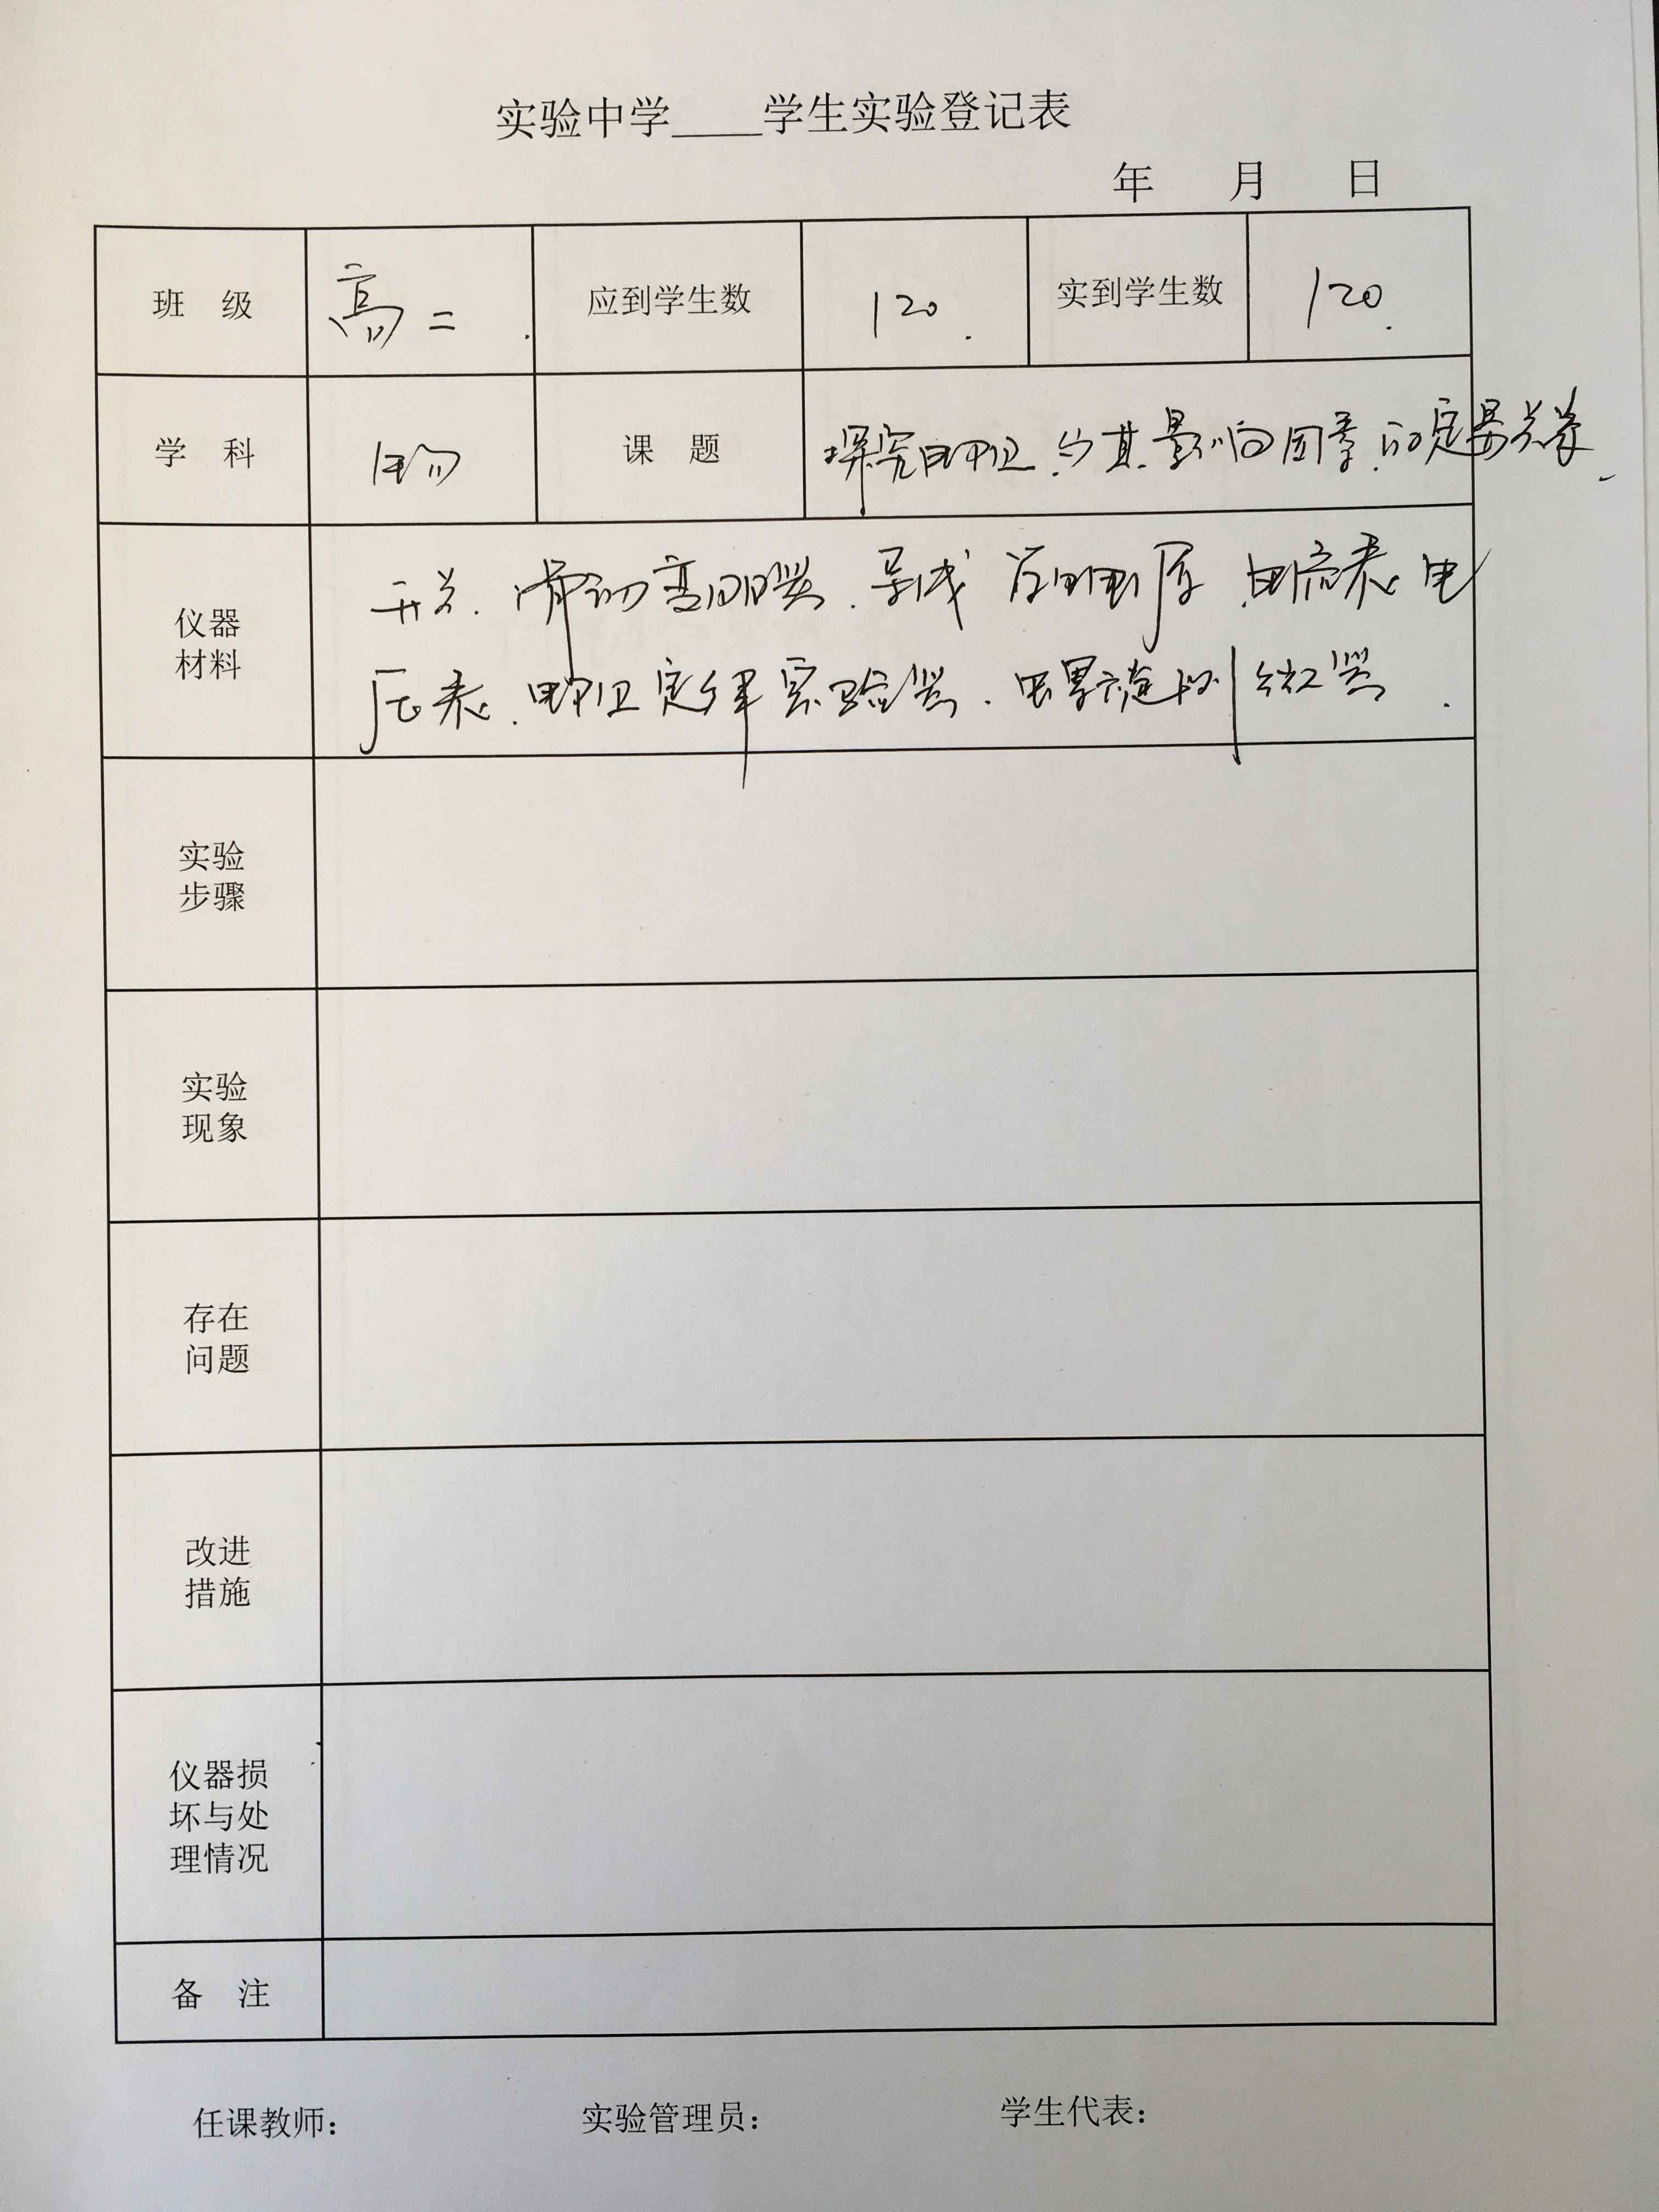 实验中学____学生实验登记表
年 月 日
班 级 高二. 应到学生数 120. 实到学生数 120.
学 科 物 课 题 探究电阻与其影响因素的定量关系.
仪器材料 开关.滑动变阻器.导线 学生电源.电流表 电
压表.电阻定律实验器.螺旋测微器.
实验
步骤
实验
现象
存在
问题
改进
措施
仪器损
坏与处
理情况
备 注
任课教师: 实验管理员: 学生代表: